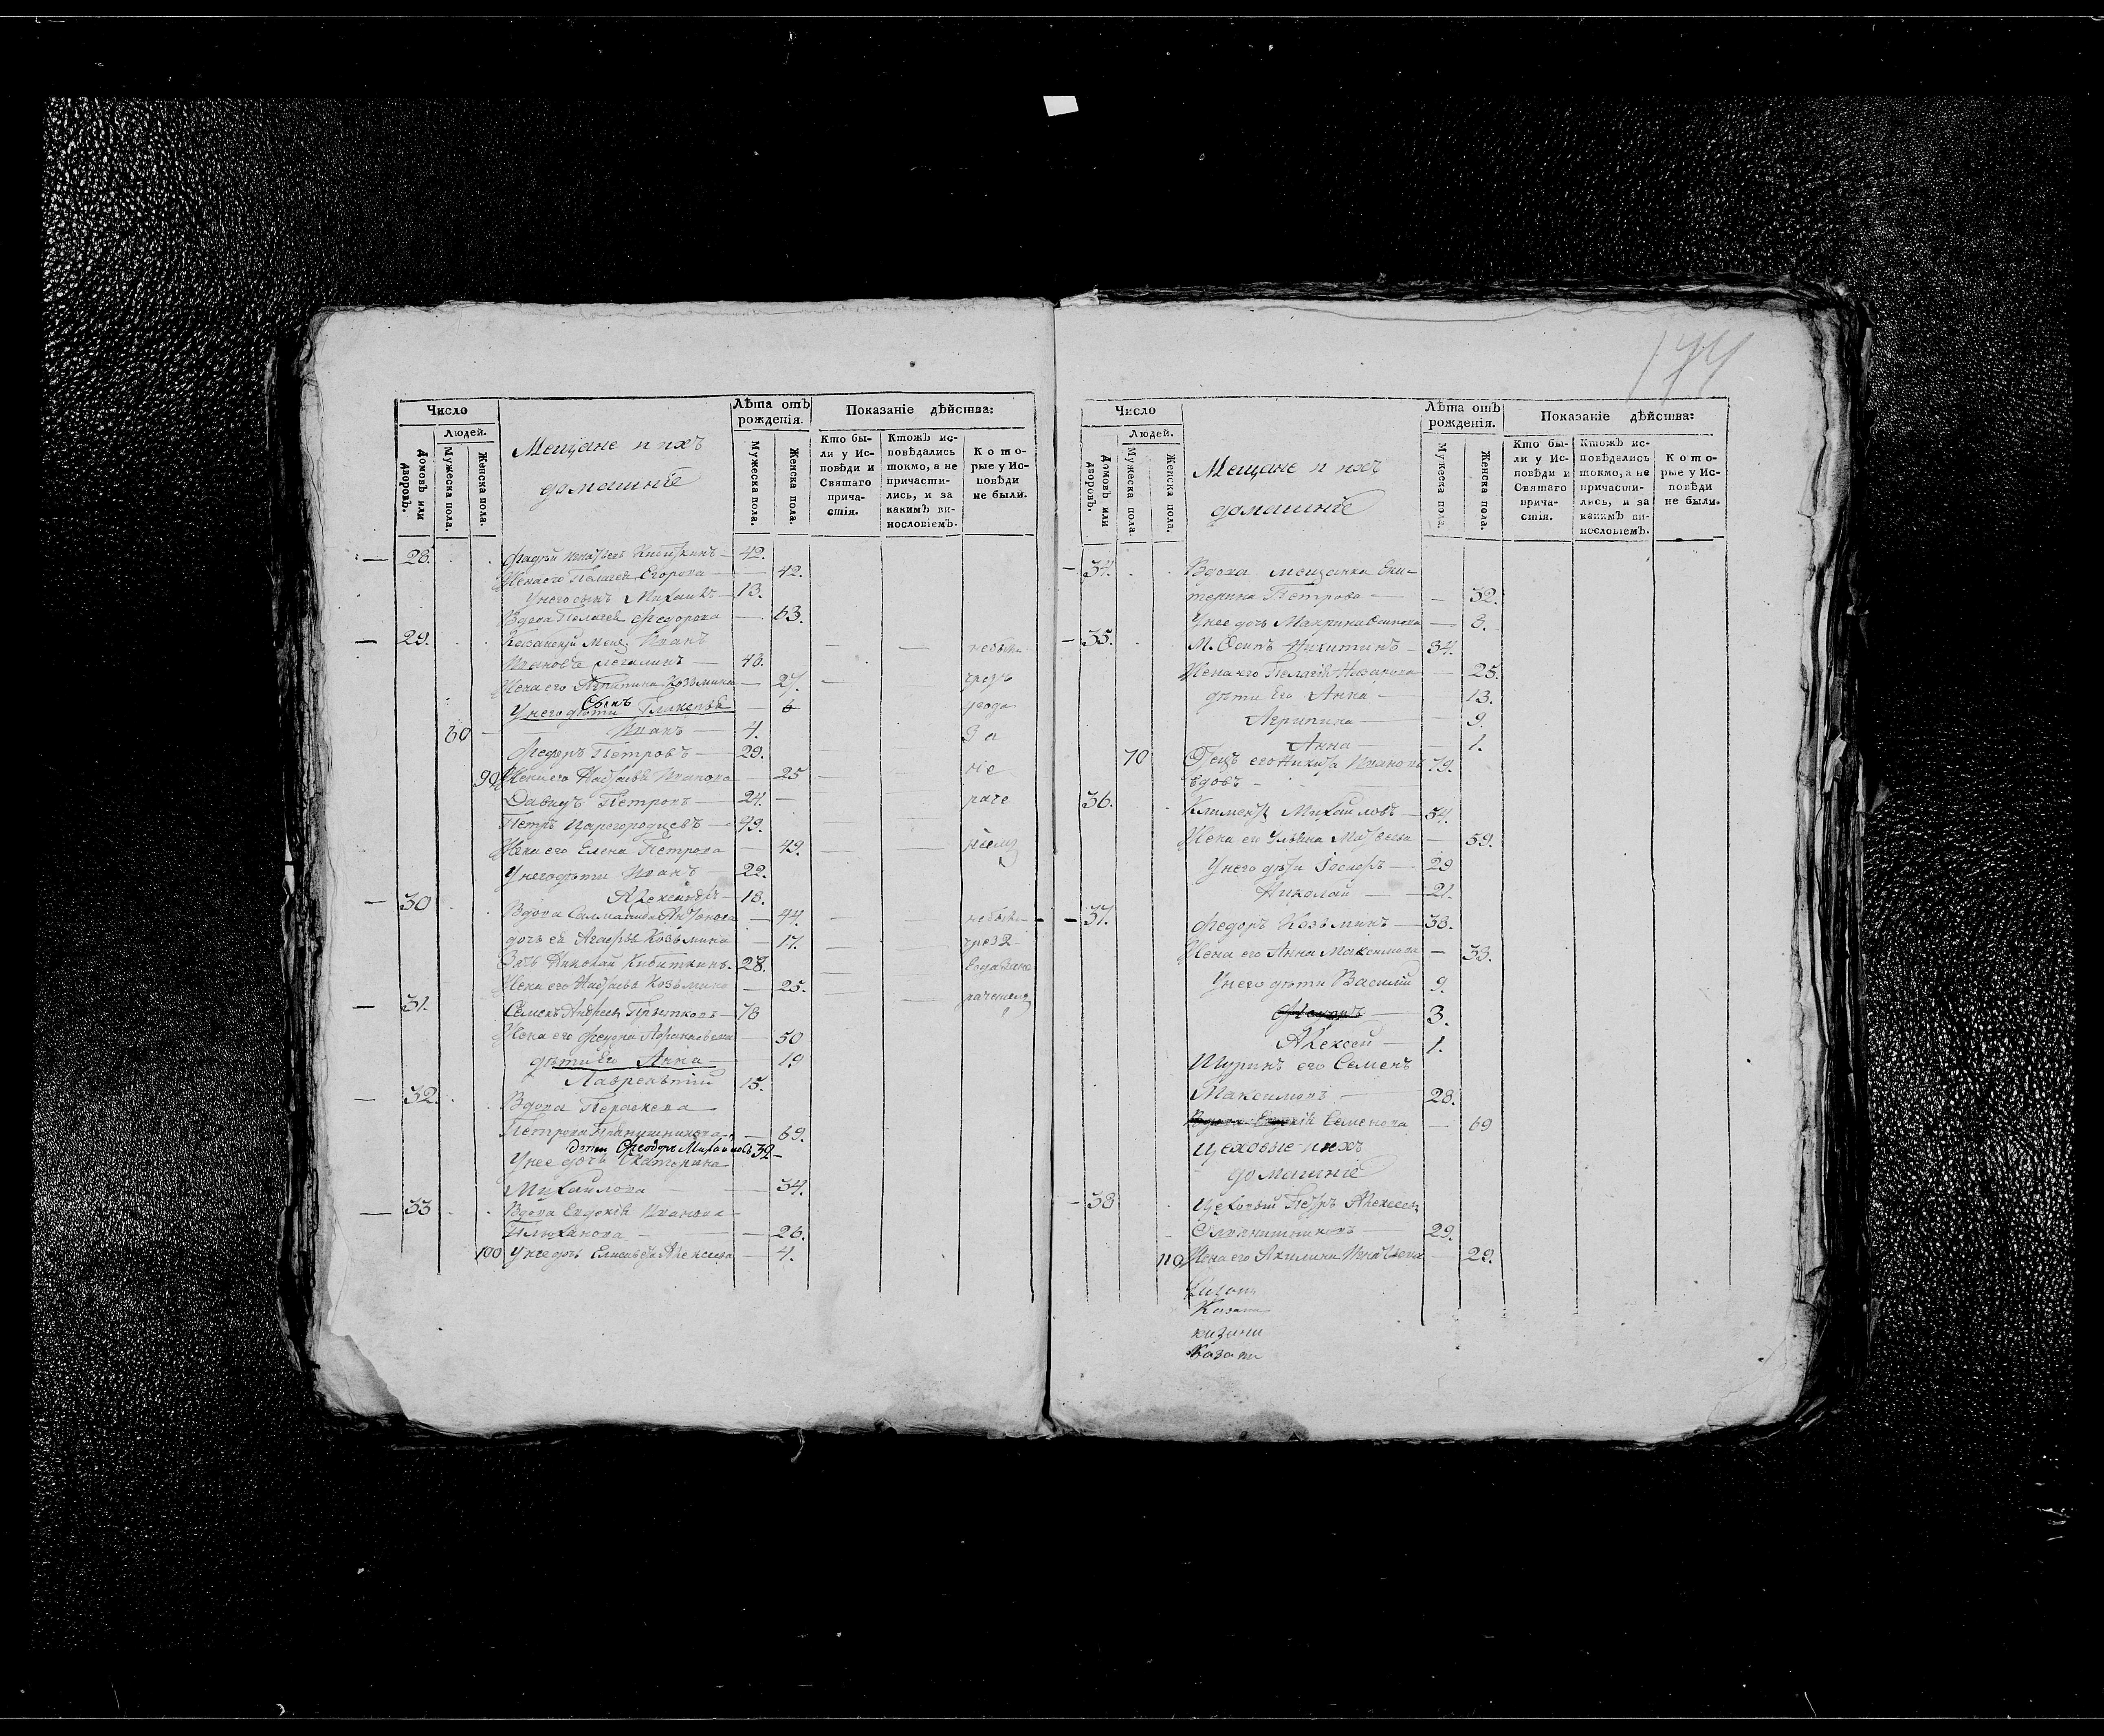 Число
Людей.
Домовъ или дворовъ.
Мужеска пола.
Женска пола.
Мещане и ихъ
домашніе
Лѣта отъ рожденія.
Мужеска пола.
Женска пола.
Показаніе дѣйства:
Кто бы-
ли у Ис-
повѣди и
Святаго
прича-
стія.
Ктожъ ис-
повѣдались
токмо, а не
причасти-
лись, и за
какимъ ви-
нословіемъ.
Кото-
рые у Ис-
повѣди
не были.
28. Фадѣй Игнатьевъ Кибиткинъ 42.
Жена его Пелагея Егорова 42.
У него сынъ Михаилъ 13.
Вдова Пелагея Федорова 63.
29. Казанскій мещ Иванъ
Ивановъ 43. небыли
Жена его Козьмина 27. чрезъ
Сынъ
У него дѣти Гликерья 6 года
60 Иванъ 4. За
Федоръ Петровъ 29.
90 Жена его Настасья Иванова 25 не
Давидъ Петровъ 24. раче
Петръ Царегородцевъ 49.
Жена его Елена Петрова 49. ніемъ
У него дѣти Иванъ 22.
Алексѣй 18.
30 Вдова Антонова 44. небыли
дочь ея Агафья Козьмина 17. чрез 2
Зять Николай Кибиткинъ 28. года зане
Жена его Настасья Козьмина 25. раченіемъ
31. Семенъ Андреевъ 78
Жена его Феодора 50
дѣти Его Анна 19
Лаврентій 15.
32. Вдова Параскева
Петрова 69.
Зять Феодоръ Михайловъ 32
У нее дочь Екатерина
Михайлова 34.
33 Вдова Евдокія Иванова
Плюханова 26.
100 У нее дочь Елисавета Алексеева 4.
174
Число
Людей.
Домовъ или дворовъ.
Мужеска пола.
Женска пола.
Мещане и ихъ
домашніе
Лѣта отъ рожденія.
Мужеска пола.
Женска пола.
Показаніе дѣйства:
Кто бы-
ли у Ис-
повѣди и
Святаго
прича-
стія.
Ктожъ ис-
повѣдались
токмо, а не
причасти-
лись, и за
какимъ ви-
нословіемъ.
Кото-
рые у Ис-
повѣди
не были.
34. Вдова мещанка Ека-
терина Петрова 32.
У нее дочь Макрина Осипова 8.
35. М. Осипъ Никитинъ 34.
Жена его Пелагія Назарова 25.
дѣти Его Анна 13.
Агрипина 9.
Анна 1.
70 Отецъ его Никита Ивановъ 79.
вдовъ
36. Климентъ Михайловъ 54.
Жена ег Ульяна Матвеева 59.
У него дѣти Іосифъ 29
Николай 21.
37. Федоръ Козьминъ 33.
Жена его Анна Максимова 33.
У него дѣти Василій 9.
Федоръ 3.
Алексей 1.
Шуринъ его Семенъ
Максимовъ 28.
Вдова Евдокія Семенова 69
Цеховые и ихъ
домашніе
38 Цеховый Петръ Алексеевъ
29.
110 Жена его Акилина Игнатьева 29.
Казани
Казани
казани
Казани